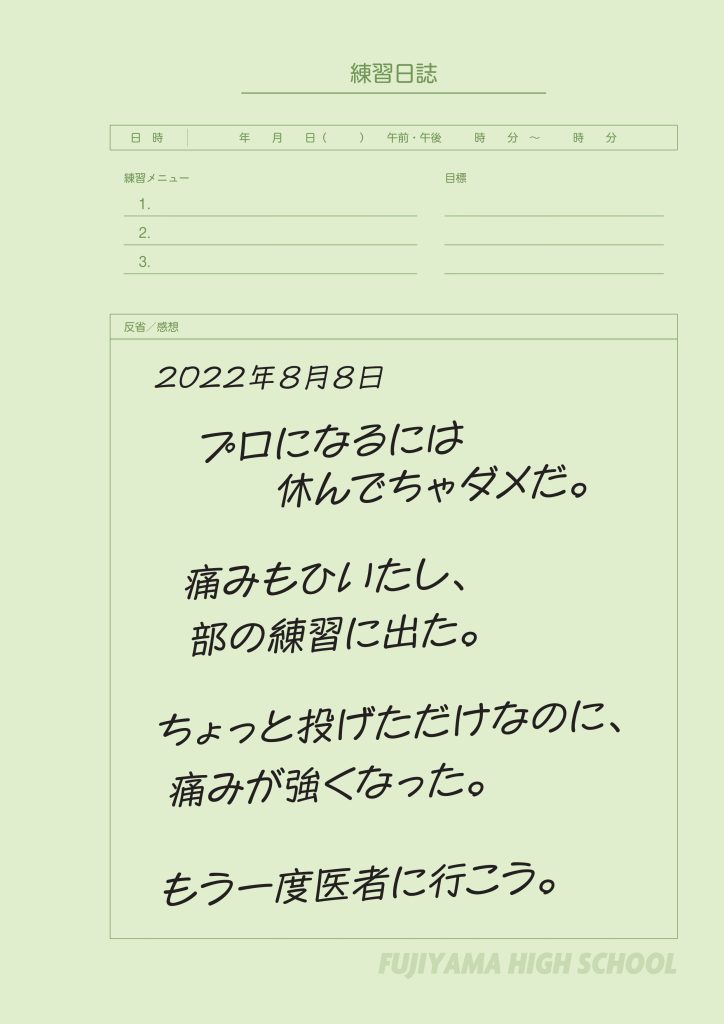 練習日誌
日 時 年 月 日( ) 午前・午後 時 分 ～ 時 分
練習メニュー 目標
1.
2.
3.
反省／感想
2022年8月8日
プロになるには
休んでちゃダメだ。
痛みもひいたし、
部の練習に出た。
ちょっと投げただけなのに、
痛みが強くなった。
もう一度医者に行こう。
FUJIYAMA HIGH SCHOOL